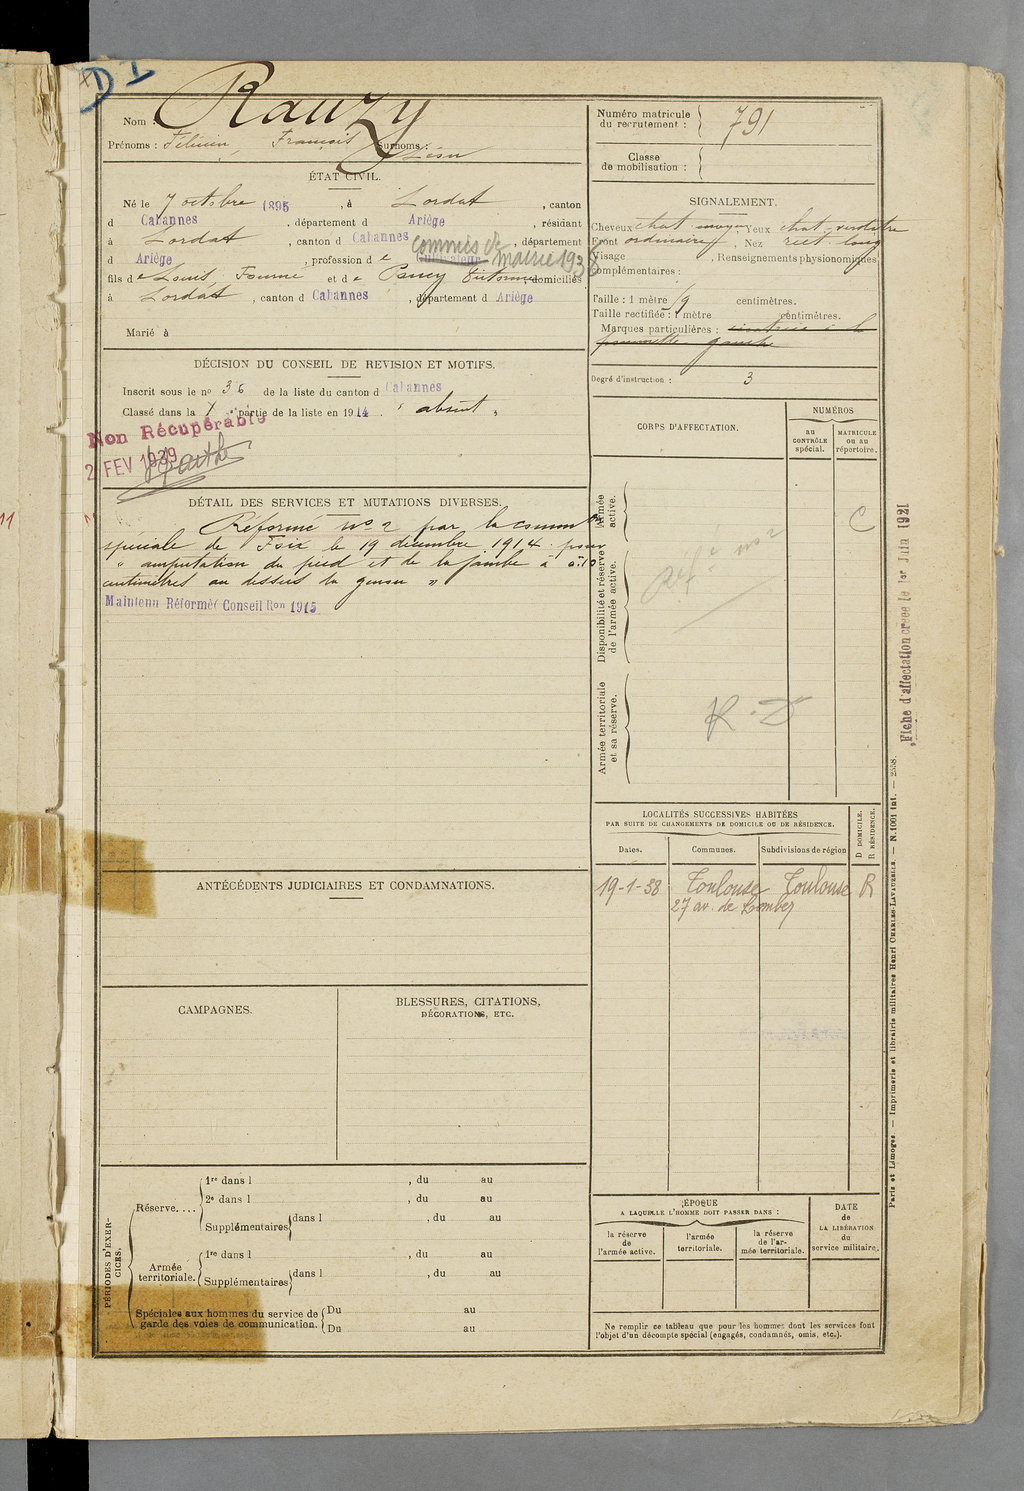 D I
Nom : Rauzy
Prénoms : Félicien, François Surnoms : Léon
ÉTAT CIVIL.
Né le 7 octobre 1895, à Lordat, canton
d Cabannes, département d Ariège, résidant
à Lordat, canton d Cabannes, département
commis de
d Ariège, profession de Cultivateur mairie 1938
fils de Louis, Fourné et de Pancy domiciliés
à Lordat, canton d Cabannes, département d Ariège
Marié à
DÉCISION DU CONSEIL DE REVISION ET MOTIFS.
Inscrit sous le no 36 de la liste du canton d Cabannes
Classé dans la partie de la liste en 1914. " absent "
Non Récupérable
2 FEV 1939
DÉTAIL DES SERVICES ET MUTATIONS DIVERSES.
Réformé no 2 par la common
spéciale de Foix le 19 décembre 1914 pour
" amputation du pied et de la jambe à 0.10
centimètres au dessus du genou "
Maintenu Réformé Conseil Ron 1915
ANTÉCÉDENTS JUDICIAIRES ET CONDAMNATIONS.
CAMPAGNES.
BLESSURES, CITATIONS,
DÉCORATIONS, ETC.
PÉRIODES D'EXER-
CICES.
Réserve....
1re dans l , du au
2e dans l , du au
Supplémentaires dans l , du au
Armée
territoriale.
1re dans l , du au
Supplémentaires dans l , du au
Spéciales aux hommes du service de
garde des voies de communication.
Du au
Du au
Numéro matricule
du recrutement : 791
Classe
de mobilisation :
SIGNALEMENT.
Cheveux chat moyen, Yeux chat-verdâtre
Front ordinaire, Nez rect-long
Visage , Renseignements physionomiques
complémentaires :
Taille : 1 mètre 19 centimètres.
Taille rectifiée : 1 mètre centimètres.
Marques particulières : cicatrice à la
pommette gauche
Degré d'instruction : 3
CORPS D'AFFECTATION.
NUMÉROS
au
CONTRÔLE
spécial.
MATRICULE
ou au
répertoire.
Armée
active.
C
Disponibilité et réserve
de l'armée active.
Réf. no 2
Armée territoriale
et sa réserve.
LOCALITÉS SUCCESSIVES HABITÉES
PAR SUITE DE CHANGEMENTS DE DOMICILE OU DE RÉSIDENCE.
Dates.
Communes.
Subdivisions de région
D DOMICILE.
R RÉSIDENCE.
19-1-38 Toulouse Toulouse R
27 av. de Lombez
ÉPOQUE
A LAQUELLE L'HOMME DOIT PASSER DANS :
la réserve
de
l'armée active.
l'armée
territoriale.
la réserve
de l'ar-
mée territoriale.
DATE
de
LA LIBÉRATION
du
service militaire.
Ne remplir ce tableau que pour les hommes dont les services font
l'objet d'un décompte spécial (engagés, condamnés, omis, etc.).
Fiche d'affectation créée le 1er Juin 1921
Paris et Limoges. — Imprimerie et librairie militaires Henri CHARLES-LAVAUZELLE. — N. 1001 int. — 2558.